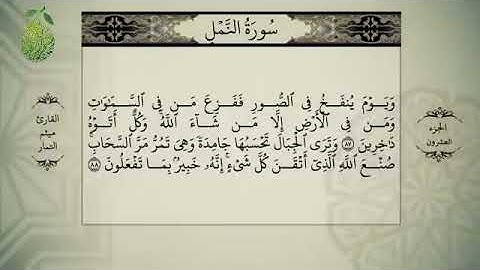 سُورَةُ النَّمْلِ
وَيَوْمَ يُنفَخُ فِي الصُّورِ فَفَزِعَ مَن فِي السَّمَٰوَٰتِ
وَمَن فِي الْأَرْضِ إِلَّا مَن شَآءَ اللَّهُ وَكُلٌّ أَتَوْهُ
دَٰخِرِينَ ٨٧ وَتَرَى الْجِبَالَ تَحْسَبُهَا جَامِدَةً وَهِيَ تَمُرُّ مَرَّ السَّحَابِ
صُنْعَ اللَّهِ الَّذِي أَتْقَنَ كُلَّ شَيْءٍ إِنَّهُ خَبِيرٌ بِمَا تَفْعَلُونَ ٨٨
الجزء
العشرون
القارئ
ميثم
التمار